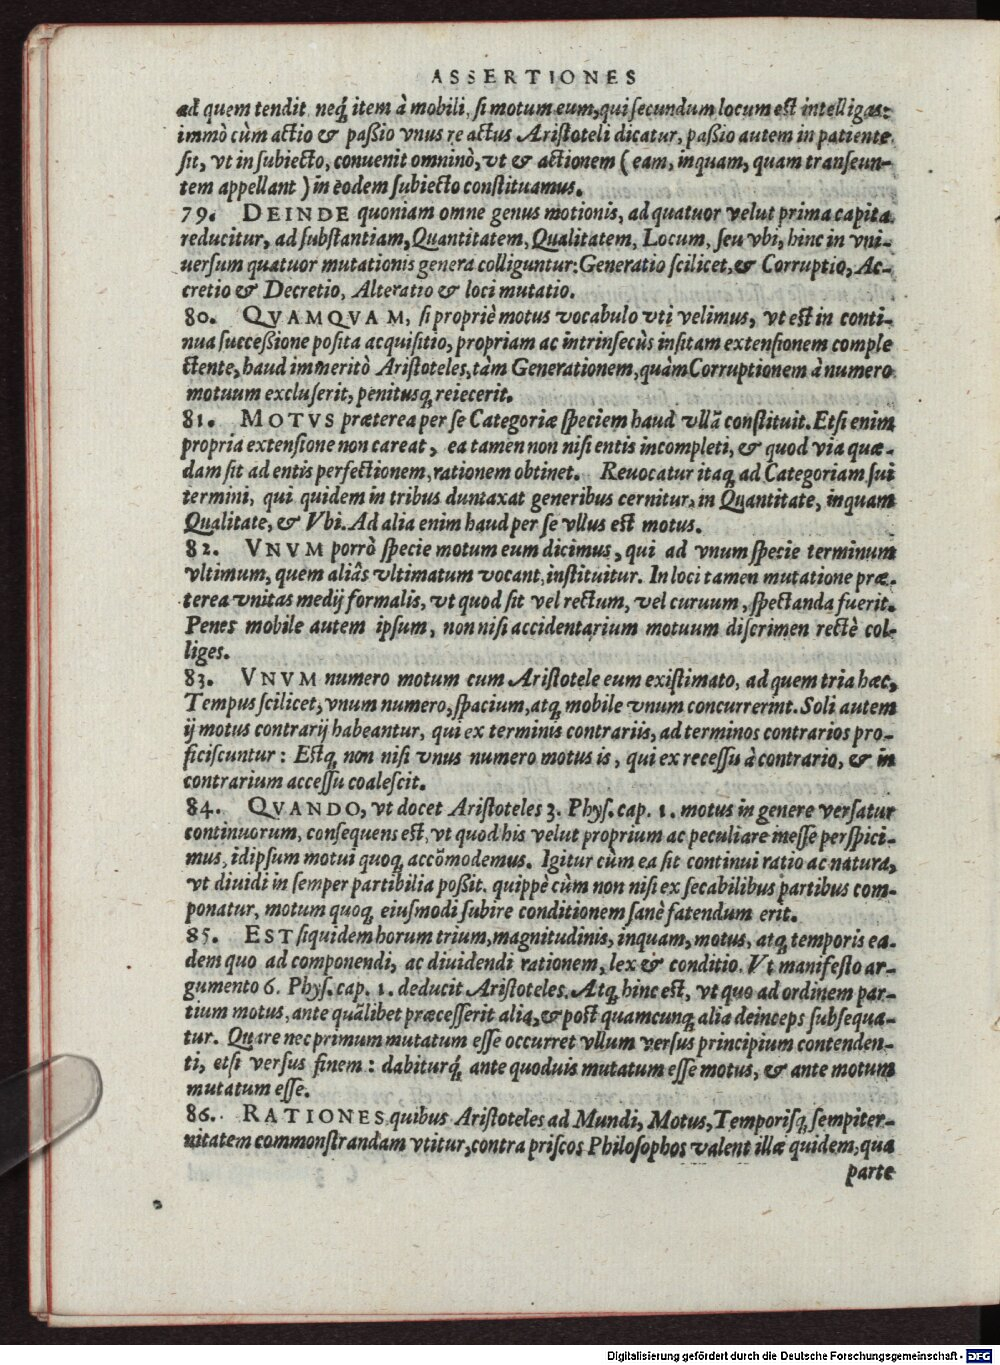 ASSERTIONES
ad quem tendit neq́; item à mobili, si motum eum, qui secundum locum est intelligas:
immò cùm actio & paßio vnus re actus Aristoteli dicatur, paßio autem in patiente
sit, vt in subiecto, conuenit omninò, vt & actionem (eam, inquam, quam transeun-
tem appellant) in eodem subiecto constituamus.
79. DEINDE quoniam omne genus motionis, ad quatuor velut prima capita
reducitur, ad substantiam, Quantitatem, Qualitatem, Locum, seu vbi, hinc in vni-
uersum quatuor mutationis genera colliguntur: Generatio scilicet, & Corruptio, Ac-
cretio & Decretio, Alteratio & loci mutatio.
80. QVAMQVAM, si propriè motus vocabulo vti velimus, vt est in conti-
nua succeßione posita acquisitio, propriam ac intrinsecùs insitam extensionem comple
ctente, haud immeritò Aristoteles, tàm Generationem, quàm Corruptionem à numero
motuum excluserit, penitusq; reiecerit.
81. MOTVS præterea per se Categoriæ speciem haud vllā constituit. Etsi enim
propria extensione non careat, ea tamen non nisi entis incompleti, & quod via quæ-
dam sit ad entis perfectionem, rationem obtinet. Reuocatur itaq; ad Categoriam sui
termini, qui quidem in tribus duntaxat generibus cernitur, in Quantitate, inquam
Qualitate, & Vbi. Ad alia enim haud per se vllus est motus.
82. VNVM porrò specie motum eum dicimus, qui ad vnum specie terminum
vltimum, quem aliâs vltimatum vocant, instituitur. In loci tamen mutatione præ-
terea vnitas medij formalis, vt quod sit vel rectum, vel curuum, spectanda fuerit.
Penes mobile autem ipsum, non nisi accidentarium motuum discrimen rectè col-
liges.
83. VNVM numero motum cum Aristotele eum existimato, ad quem tria hæc,
Tempus scilicet, vnum numero, spacium, atq; mobile vnum concurrerint. Soli autem
ij motus contrarij habeantur, qui ex terminis contrariis, ad terminos contrarios pro-
ficiscuntur: Estq; non nisi vnus numero motus is, qui ex recessu à contrario, & in
contrarium accessu coalescit.
84. QVANDO, vt docet Aristoteles 3. Phys. cap. 1. motus in genere versatur
continuorum, consequens est, vt quod his velut proprium ac peculiare inesse perspici-
mus, idipsum motui quoq; accōmodemus. Igitur cùm ea sit continui ratio ac natura,
vt diuidi in semper partibilia poßit. quippè cùm non nisi ex secabilibus partibus com-
ponatur, motum quoq; eiusmodi subire conditionem sanè fatendum erit.
85. EST siquidem horum trium, magnitudinis, inquam, motus, atq; temporis ea-
dem quo ad componendi, ac diuidendi rationem, lex & conditio. Vt manifesto ar-
gumento 6. Phys. cap. 1. deducit Aristoteles. Atq; hinc est, vt quo ad ordinem par-
tium motus, ante quālibet præcesserit alia, & post quamcunq; alia deinceps subsequa-
tur. Quare nec primum mutatum esse occurret vllum versus principium contenden-
ti, etsi versus finem: dabiturq́; ante quoduis mutatum esse motus, & ante motum
mutatum esse.
86. RATIONES quibus Aristoteles ad Mundi, Motus, Temporisq; sempiter-
nitatem commonstrandam vtitur, contra priscos Philosophos valent illæ quidem, qua
parte
Digitalisierung gefördert durch die Deutsche Forschungsgemeinschaft - DFG